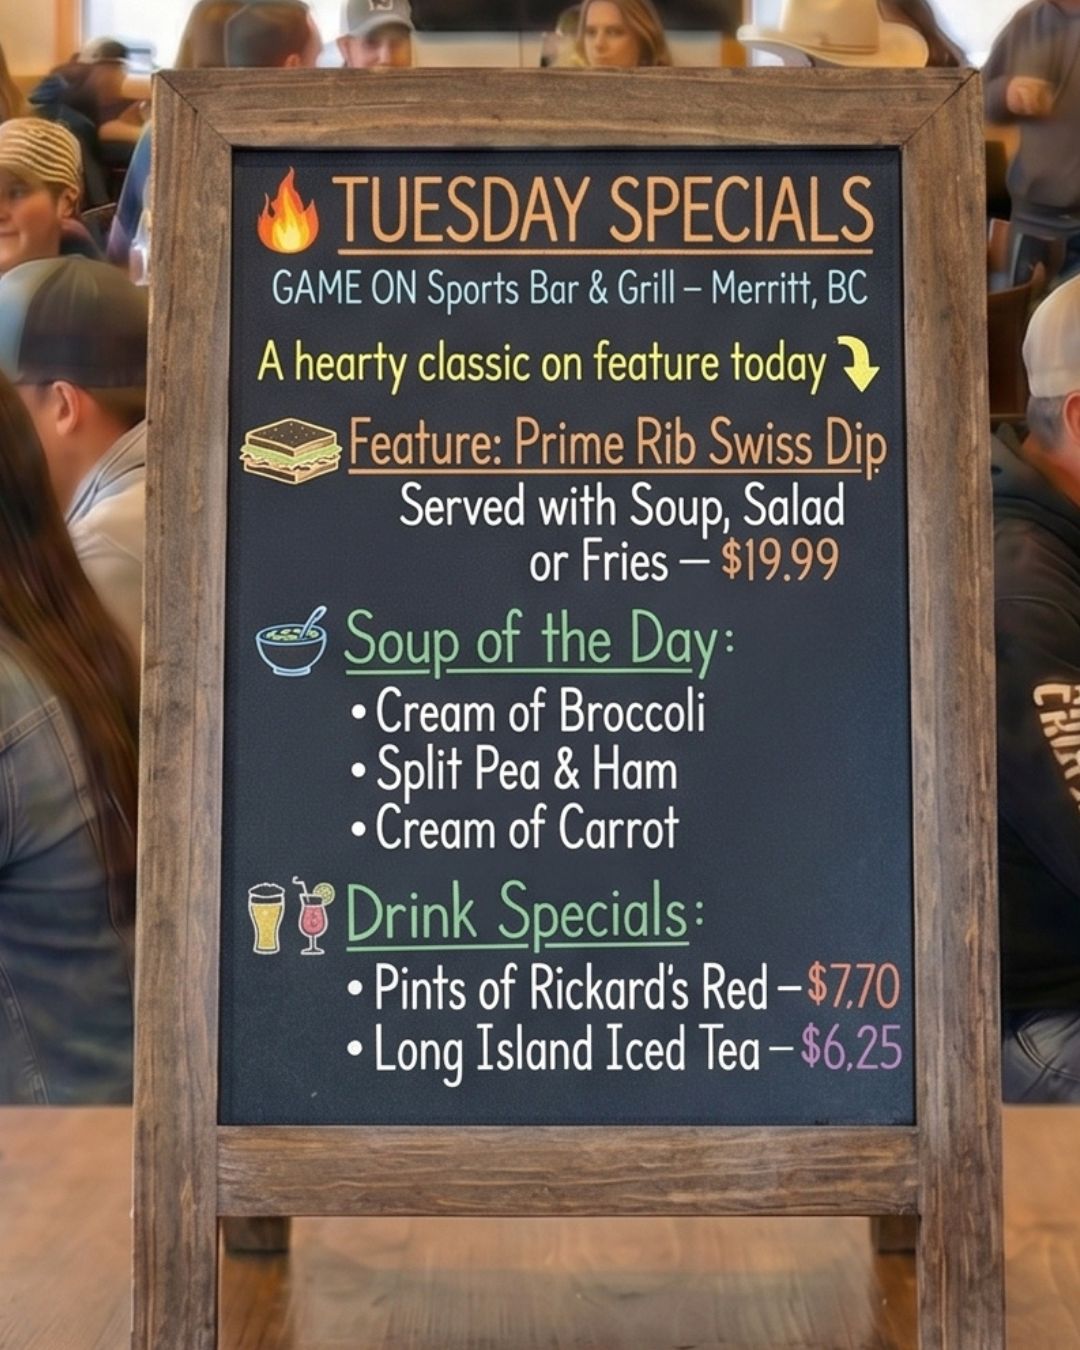 TUESDAY SPECIALS
GAME ON Sports Bar & Grill – Merritt, BC
A hearty classic on feature today
Feature: Prime Rib Swiss Dip
Served with Soup, Salad
or Fries – $19.99
Soup of the Day:
• Cream of Broccoli
• Split Pea & Ham
• Cream of Carrot
Drink Specials:
• Pints of Rickard's Red – $7.70
• Long Island Iced Tea – $6.25